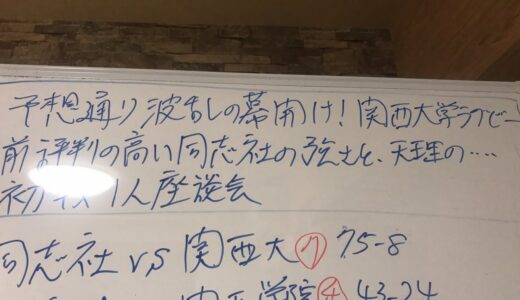 予想通り波乱の幕開け！関西大学ラグビー
前評判の高い同志社の強さと、天理の‥‥
初戦 1人座談会
同志社 vs 関西大⑦ 75-8
関西学院④ 43-24